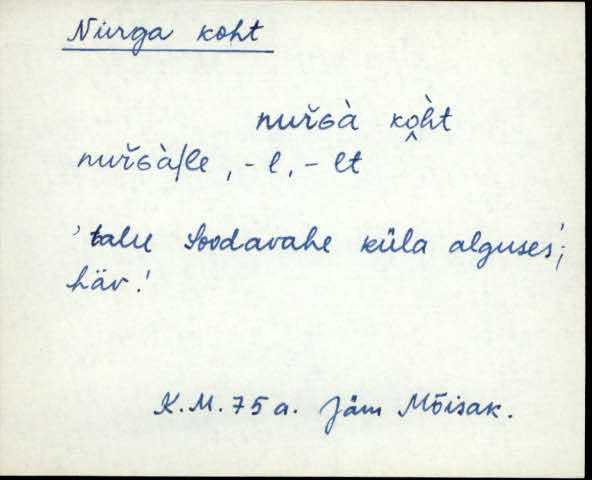 Nurga koht
nuřɢà ko̭h̀t
nuřɢà/le, - l, - lt
'talu Soodavahe küla alguses';
häv.!
K.M. 75 a. Jäm Mõisak.